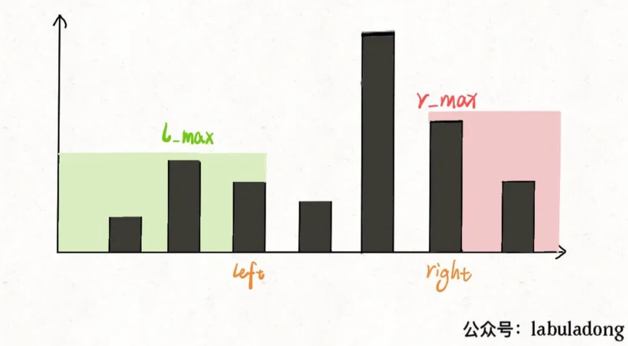 r_max
l_max
left
right
公众号：labuladong